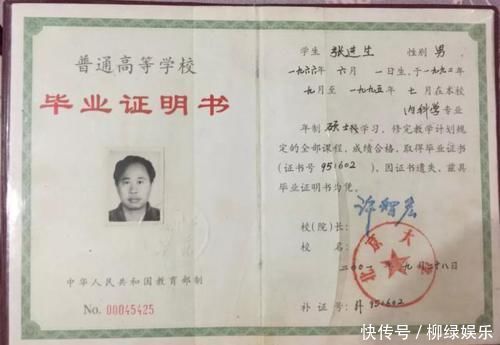 普通高等学校
毕业证明书
中华人民共和国教育部制
No. 00045425
学生 张进生 性别 男,
一九六六年 六月 一日生,于一九九二年
九月至 一九九五年 七月在本校
内科学专业
年制 硕士班学习,修完教学计划规
定的全部课程,成绩合格,取得毕业证书
(证书号 951602 ),因证书遗失,兹具
毕业证明书为凭。
校(院)长:
校 名:
北京大学
二〇〇一年 九月 二十八日
补 证 号: 951602
快传号 / 柳绿娱乐